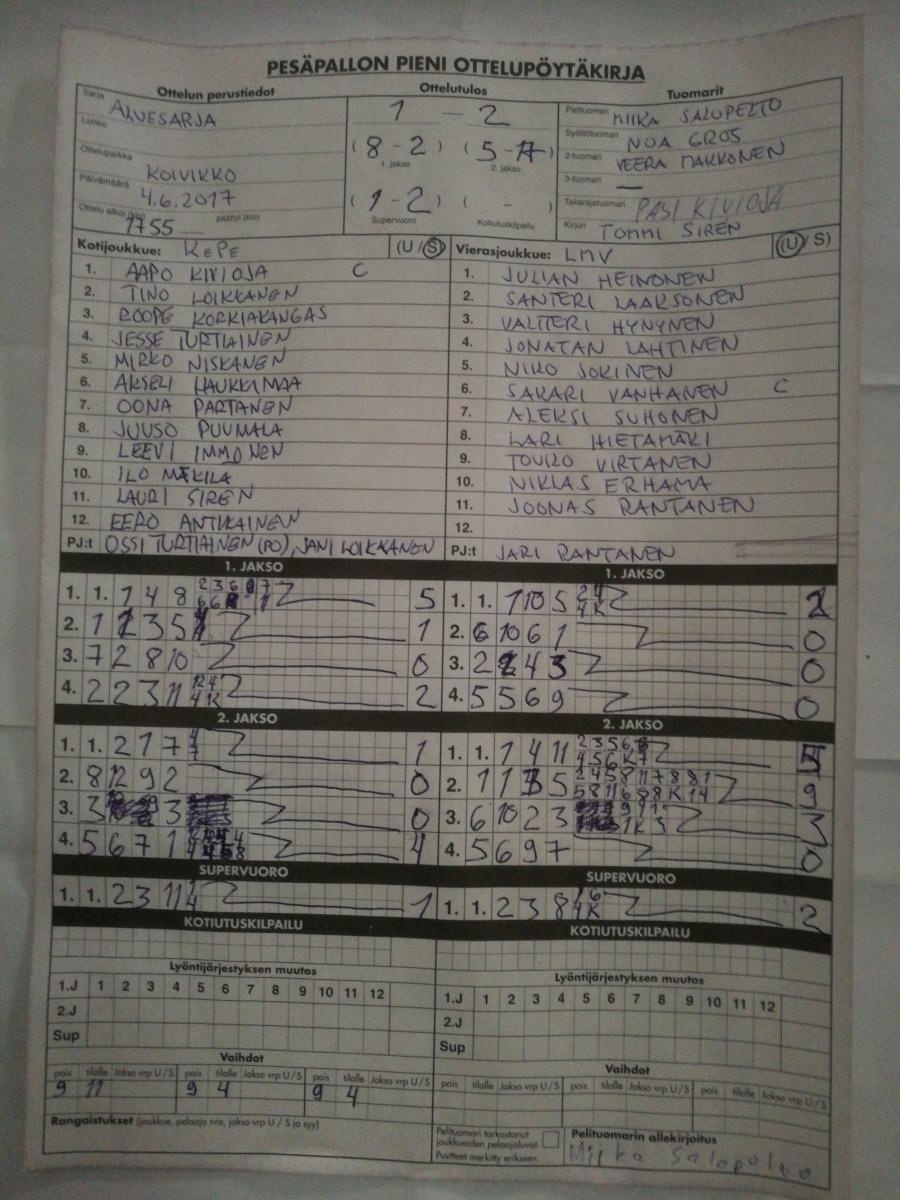 PESÄPALLON PIENI OTTELUPÖYTÄKIRJA
Ottelun perustiedot
Sarja ALUESARJA
Lohko
Ottelupaikka KOIVIKKO
Päivämäärä 4.6.2017
Ottelu alkoi (klo) 1755 päättyi (klo)
Ottelutulos
1 - 2
(8 - 2) (5 -
1. jakso 2. jakso
(1 - 2) ( - )
Supervuoro Kotiutuskilpailu
Tuomarit
Pelituomari MIIKA SALOPELTO
Syöttötuomari NOA GROS
2-tuomari VEERA MAKKONEN
3-tuomari —
Takarajatuomari PASI KIVIOJA
Kirjuri TOMMI SIREN
Kotijoukkue: KEPE (U / S)
1. AAPO KIVIOJA C
2. TINO LOIKKANEN
3. ROOPE KORKIAKANGAS
4. JESSE TURTIAINEN
5. MIRKO NISKANEN
6. AKSELI HAUKKIMAA
7. OONA PARTANEN
8. JUUSO PUUMALA
9. LEEVI IMMONEN
10. ILO MÄKILÄ
11. LAURI SIREN
12. EERO ANTIKAINEN
PJ:t OSSI TURTIAINEN (PO), JANI LOIKKANEN
Vierasjoukkue: LMV (U / S)
1. JULIAN HEINONEN
2. SANTERI LAAKSONEN
3. VALTTERI HYNYNEN
4. JONATAN LAHTINEN
5. NIKO JOKINEN
6. SAKARI VANHANEN C
7. ALEKSI SUHONEN
8. LARI HIETAMÄKI
9. TOUKO VIRTANEN
10. NIKLAS ERHAMA
11. JOONAS RANTANEN
12.
PJ:t JARI RANTANEN
1. JAKSO
1. 1. 1 4 8 5
2. 1 2 3 5 1
3. 7 2 8 10 0
4. 2 2 3 11 2
1. JAKSO
1. 1. 1 10 5 2
2. 6 10 6 1 0
3. 2 4 3 0
4. 5 5 6 9 0
2. JAKSO
1. 1. 2 1 7 1
2. 8 12 9 2 0
3. 3 3 0
4. 5 6 7 1 4
2. JAKSO
1. 1. 1 4 11 2 3 5 6 4 5 6 K 7 5
2. 1 1 5 2 4 5 8 11 7 8 8 1 9
3. 6 10 2 3 3
4. 5 6 9 7 0
SUPERVUORO
1. 1. 2 3 11 1
SUPERVUORO
1. 1. 2 3 8 2
KOTIUTUSKILPAILU
KOTIUTUSKILPAILU
Lyöntijärjestyksen muutos
1.J 1 2 3 4 5 6 7 8 9 10 11 12
2.J
Sup
Lyöntijärjestyksen muutos
1.J 1 2 3 4 5 6 7 8 9 10 11 12
2.J
Sup
Vaihdot
pois tilalle Jakso vrp U/S pois tilalle Jakso vrp U/S pois tilalle Jakso vrp U/S
9 11 9 4 9 4
Vaihdot
pois tilalle Jakso vrp U/S pois tilalle Jakso vrp U/S pois tilalle Jakso vrp U/S
Rangaistukset (joukkue, pelaaja nro, jakso vrp U / S ja syy)
Pelituomari tarkastanut
joukkueiden pelaajaluvat
Puutteet merkitty erikseen.
Pelituomarin allekirjoitus
Miika Salopelto